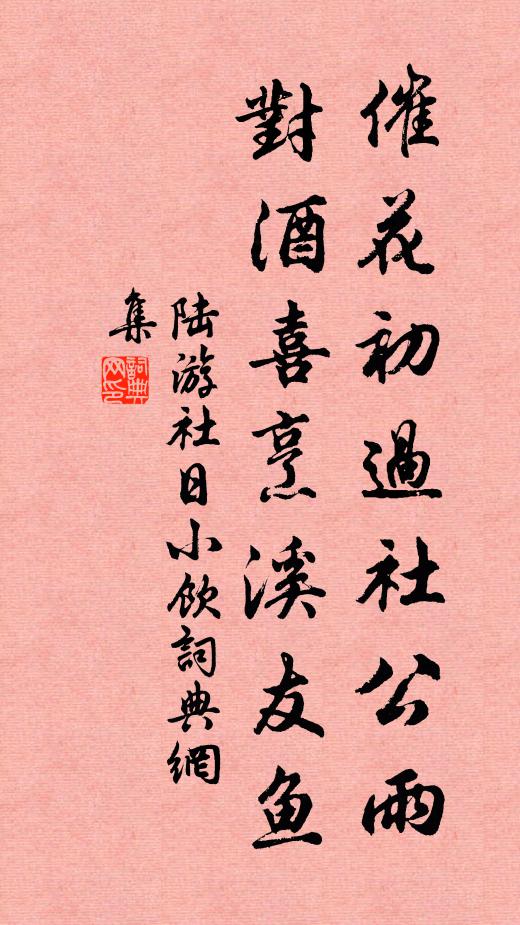 催花初過社公雨
對酒喜烹溪友鱼
陆游社日小飲詞典網
集
詞典网印